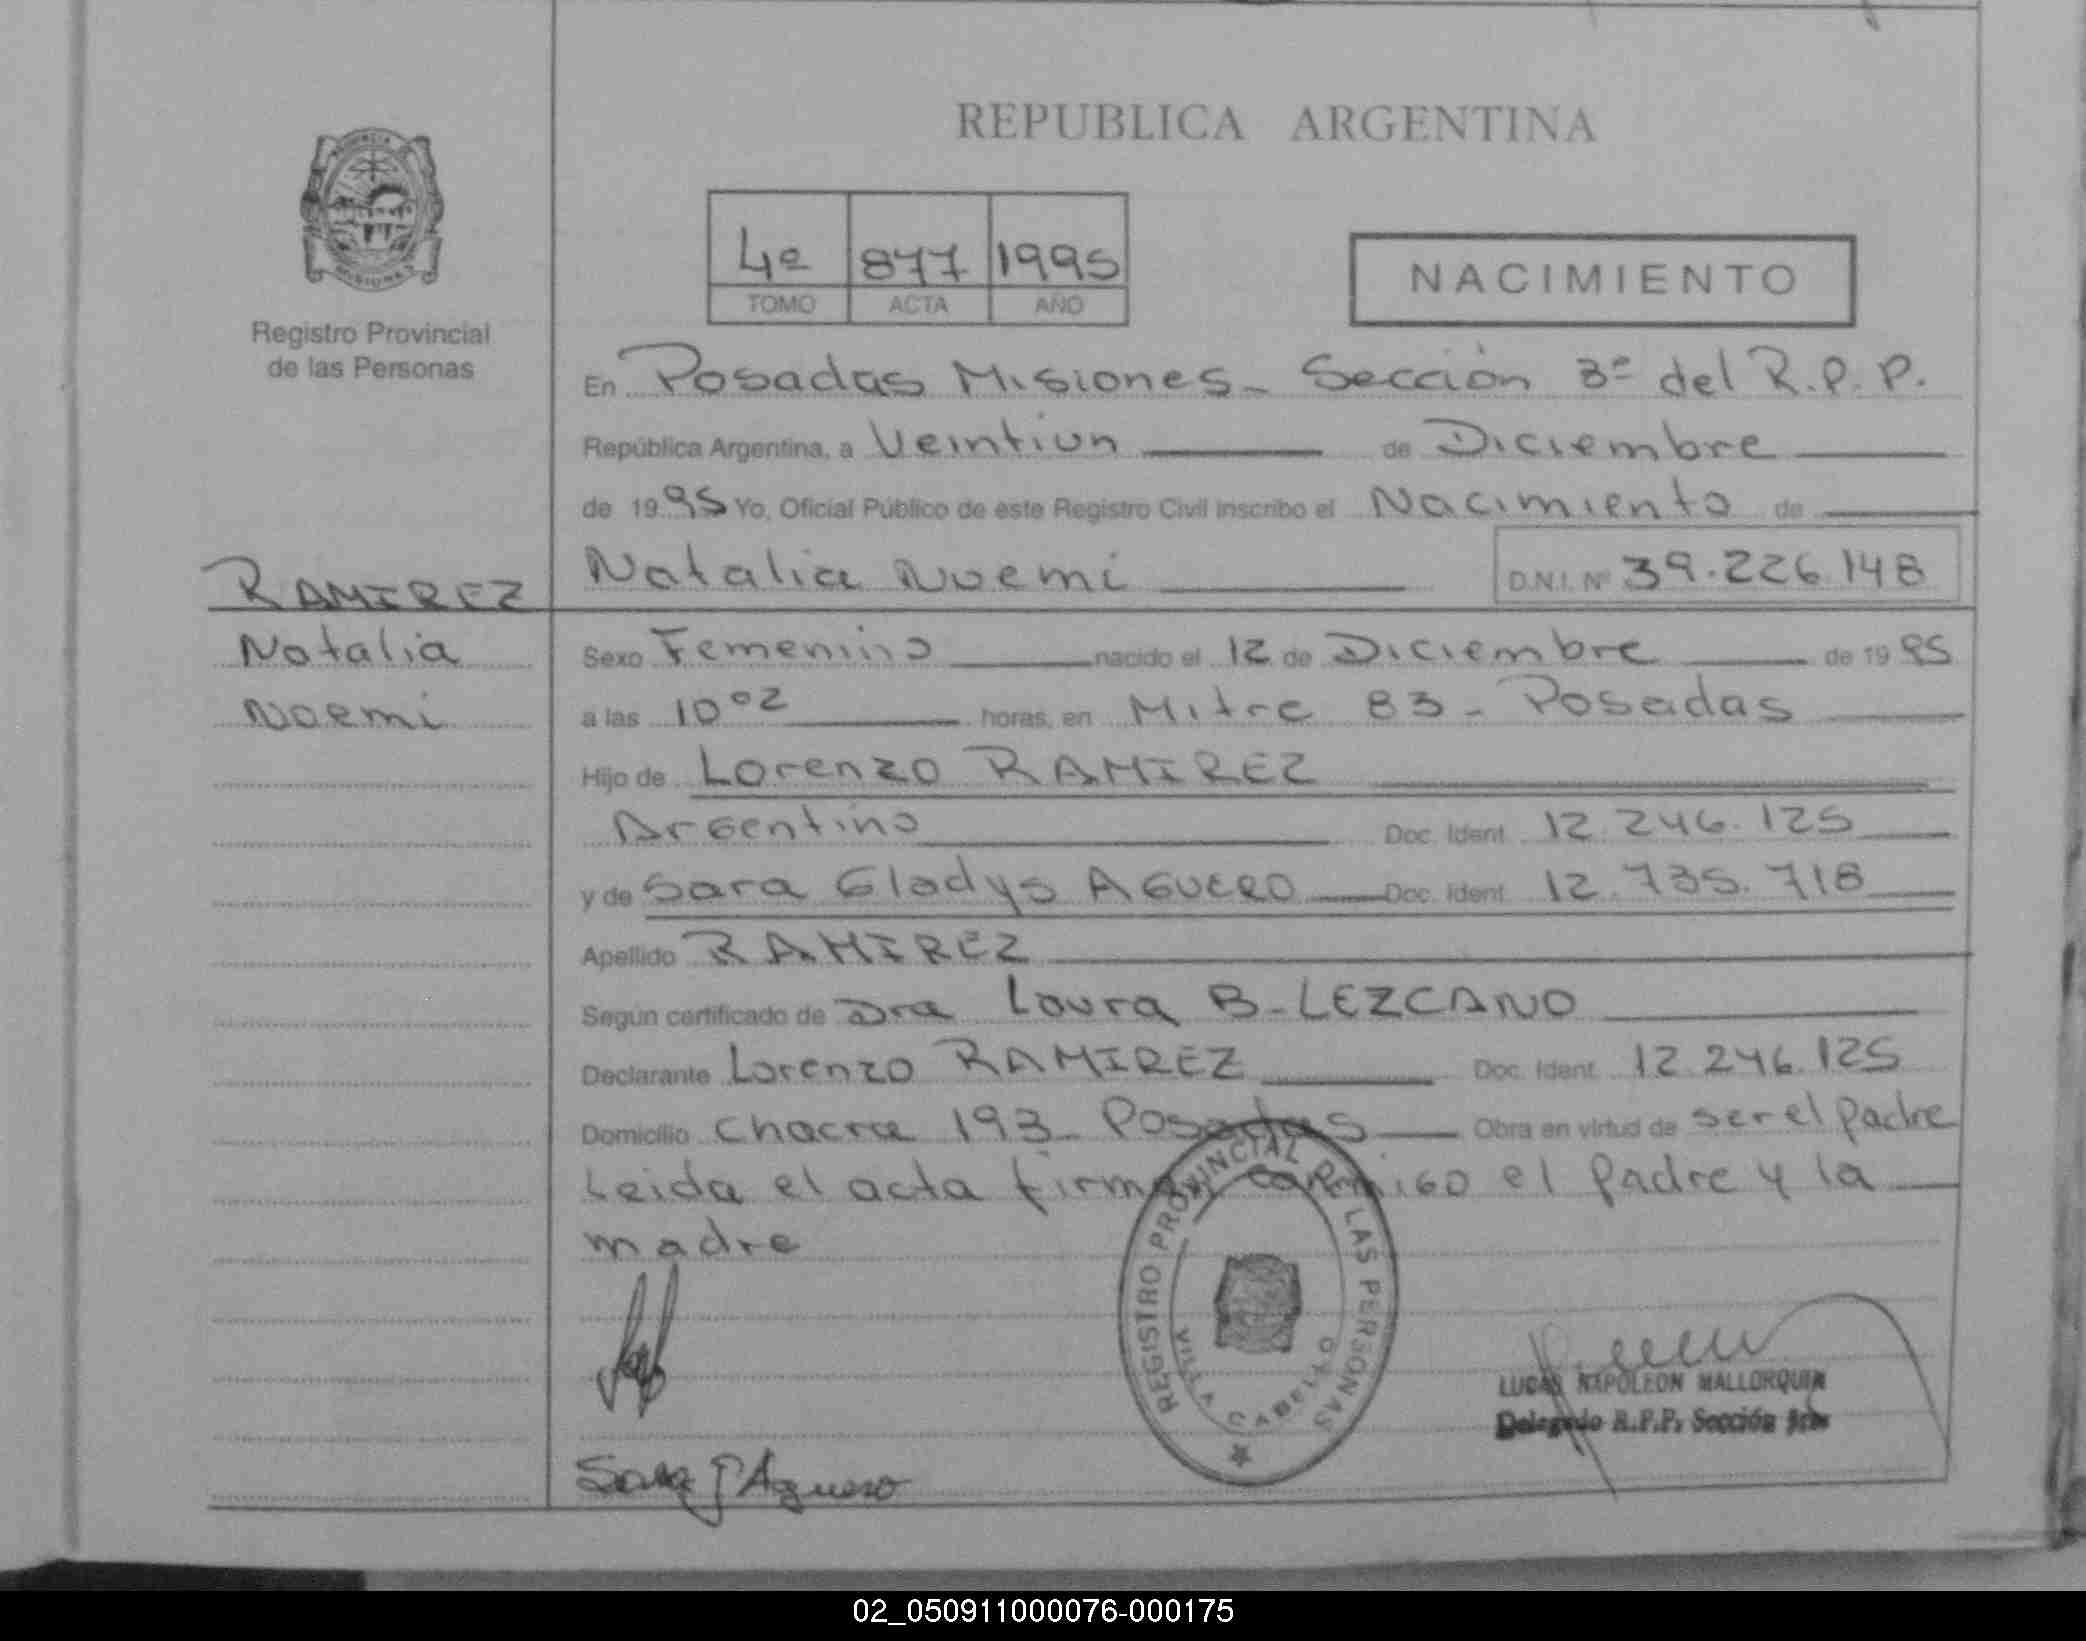 REPUBLICA ARGENTINA
PROVINCIA
MISIONES
Registro Provincial
de las Personas
4º 877 1995
TOMO ACTA AÑO
NACIMIENTO
En Posadas Misiones - Sección 3º del R.P.P.
República Argentina, a Veintiun de Diciembre
de 1995 Yo, Oficial Público de este Registro Civil inscribo el Nacimiento de
RAMIREZ
Natalia
Noemi
Natalia Noemi D.N.I. Nº 39.226.148
Sexo Femenino nacido el 12 de Diciembre de 1995
a las 10º2 horas, en Mitre 83 - Posadas
Hijo de Lorenzo RAMIREZ
Argentino Doc. Ident. 12.246.125
y de Sara Gladys AGUERO Doc. Ident. 12.735.718
Apellido RAMIREZ
Según certificado de Dra Laura B. LEZCANO
Declarante Lorenzo RAMIREZ Doc. Ident. 12.246.125
Domicilio Chacra 193 - Posadas Obra en virtud de ser el padre
Leida el acta firman conmigo el padre y la
madre
REGISTRO PROVINCIAL DE LAS PERSONAS
VILLA CABELLO
LUCAS NAPOLEON MALLORQUIN
Delegado R.P.P. Sección 3ra
Sara G Aguero
02_050911000076-000175